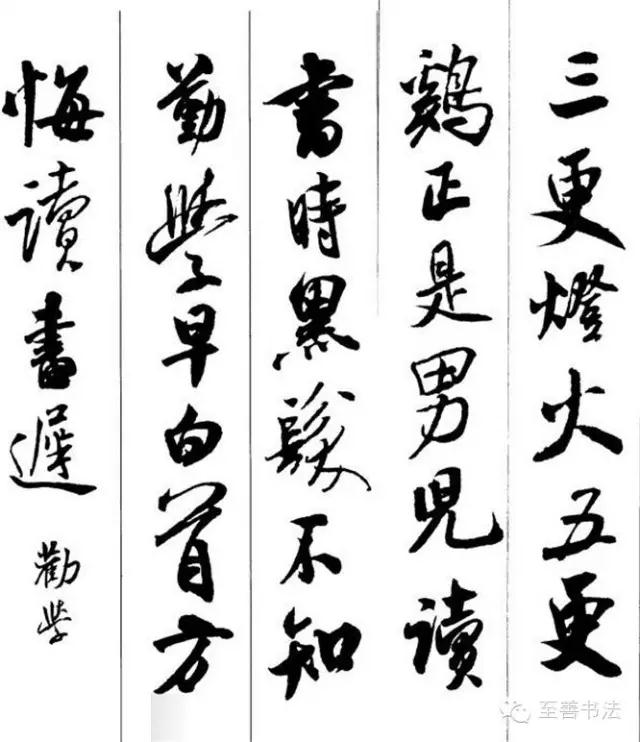 三更燈火五更
鷄正是男児讀
書時黒髮不知
勤學早白首方
悔讀書遲
勸学
至善书法